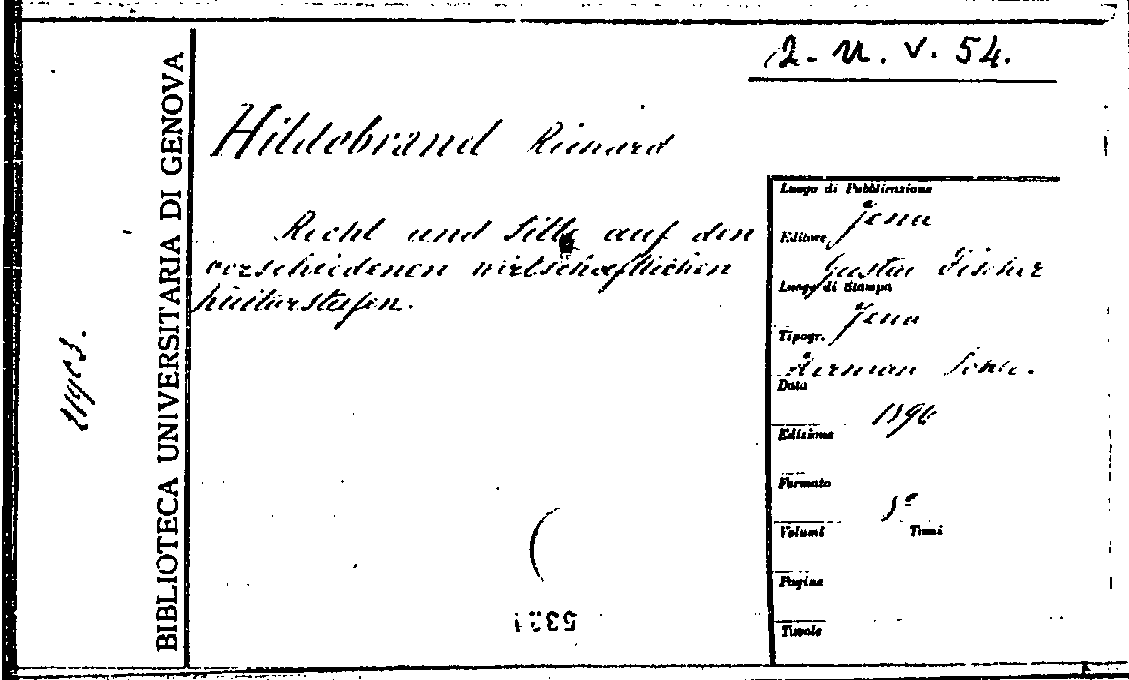 2. U. V. 54.
Hildebrand Richard
Recht und Sitte auf den
verschiedenen wirtschaftlichen
Kulturstufen.
BIBLIOTECA UNIVERSITARIA DI GENOVA
Luogo di Pubblicazione
a Jena
Editore
Gustav Fischer
Luogo di Stampa
a Jena
Tipogr.
Herman
Data
1896
Edizione
Formato
8º
Volumi Tomi
Pagine
Tavole